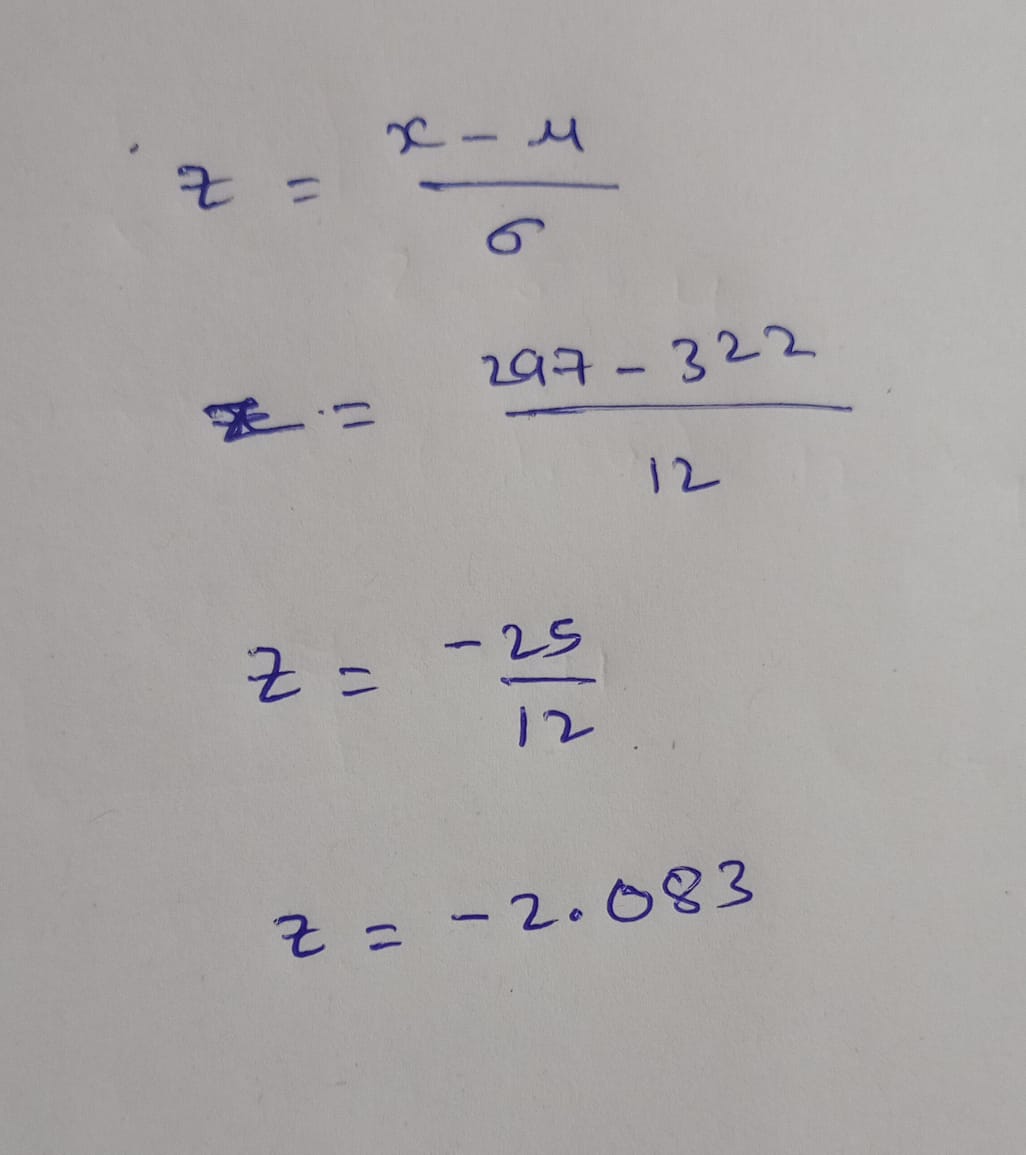 z = x - μ / σ
= 297 - 322 / 12
z = -25 / 12
z = -2.083